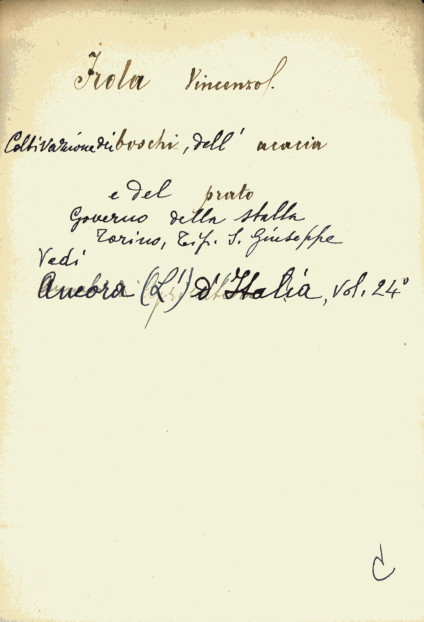 Irola Vincenzo.
Coltivazione dei boschi, dell' acacia
e del prato
Governo della stalla
Torino, Tip. S. Giuseppe
Vedi
Ancora (L') d'Italia, vol. 24°
C